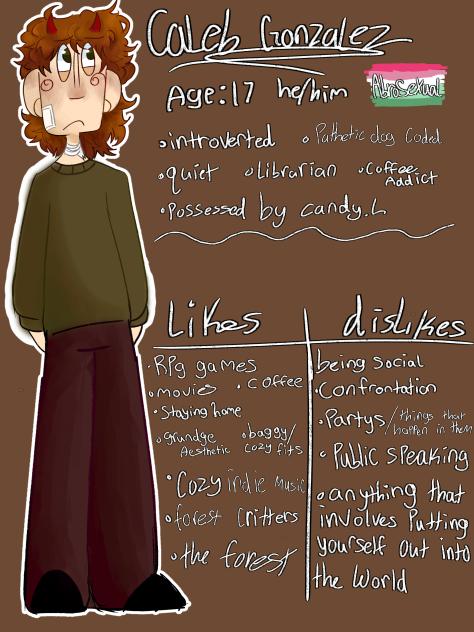 Caleb Gonzalez
Age:17 he/him AbroSexual
•introverted •Pathetic dog Coded
•quiet •Librarian •Coffee Addict
•Possessed by candy.L
Likes
•RPg games
•movies •Coffee
•Staying home
•grundge Aesthetic •baggy/cozy fits
•Cozy indie Music
•forest Critters
•the forest
dislikes
being social
•Confrontation
•Partys/things that happen in them
•Public Speaking
•anything that
involves Putting
yourself out into
the World